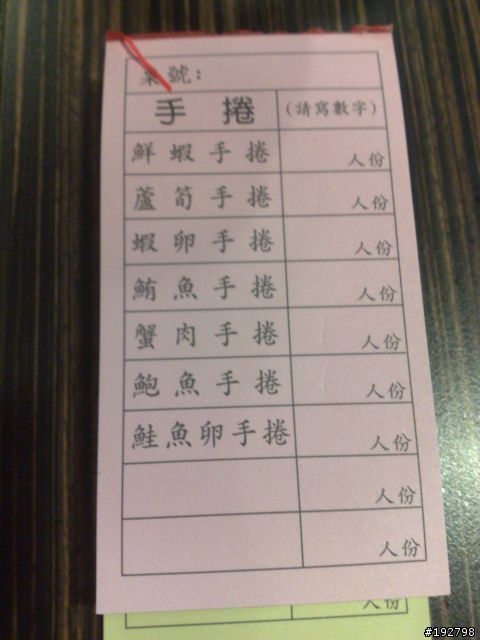 桌號：
手捲 (請寫數字)
鮮蝦手捲 人份
蘆筍手捲 人份
蝦卵手捲 人份
鮪魚手捲 人份
蟹肉手捲 人份
鮑魚手捲 人份
鮭魚卵手捲 人份
人份
人份
人份
#192798